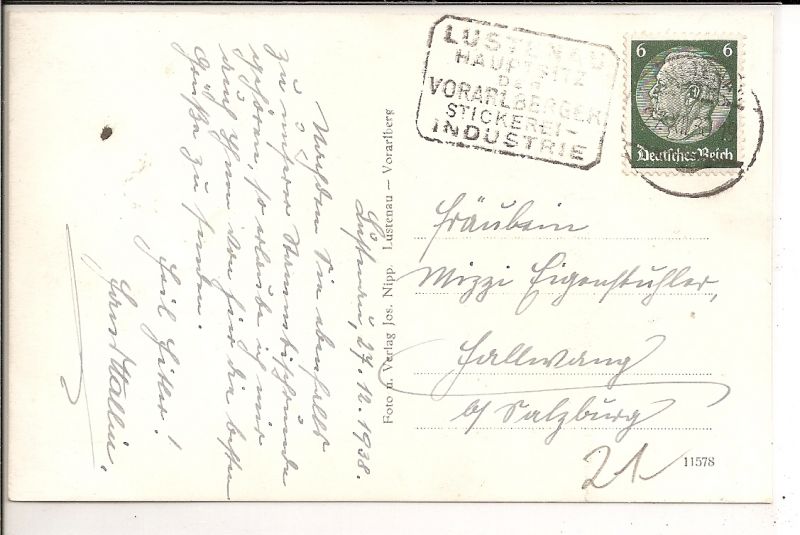 Lustenau, 27.12.1938.
Nachdem Sie ebenfalls
zu unserer Stammtischrunde
gehören, so erlaube ich mir
auch Ihnen von hier die besten
Grüße zu senden.
Heil Hitler!
Foto u. Verlag Jos. Nipp. Lustenau — Vorarlberg
LUSTENAU
HAUPTSITZ
DER
VORARLBERGER
STICKEREI-
INDUSTRIE
6 6
Deutsches Reich
Fräulein
Mizzi Eigenstuhler,
Hallwang
b/ Salzburg
21
11578